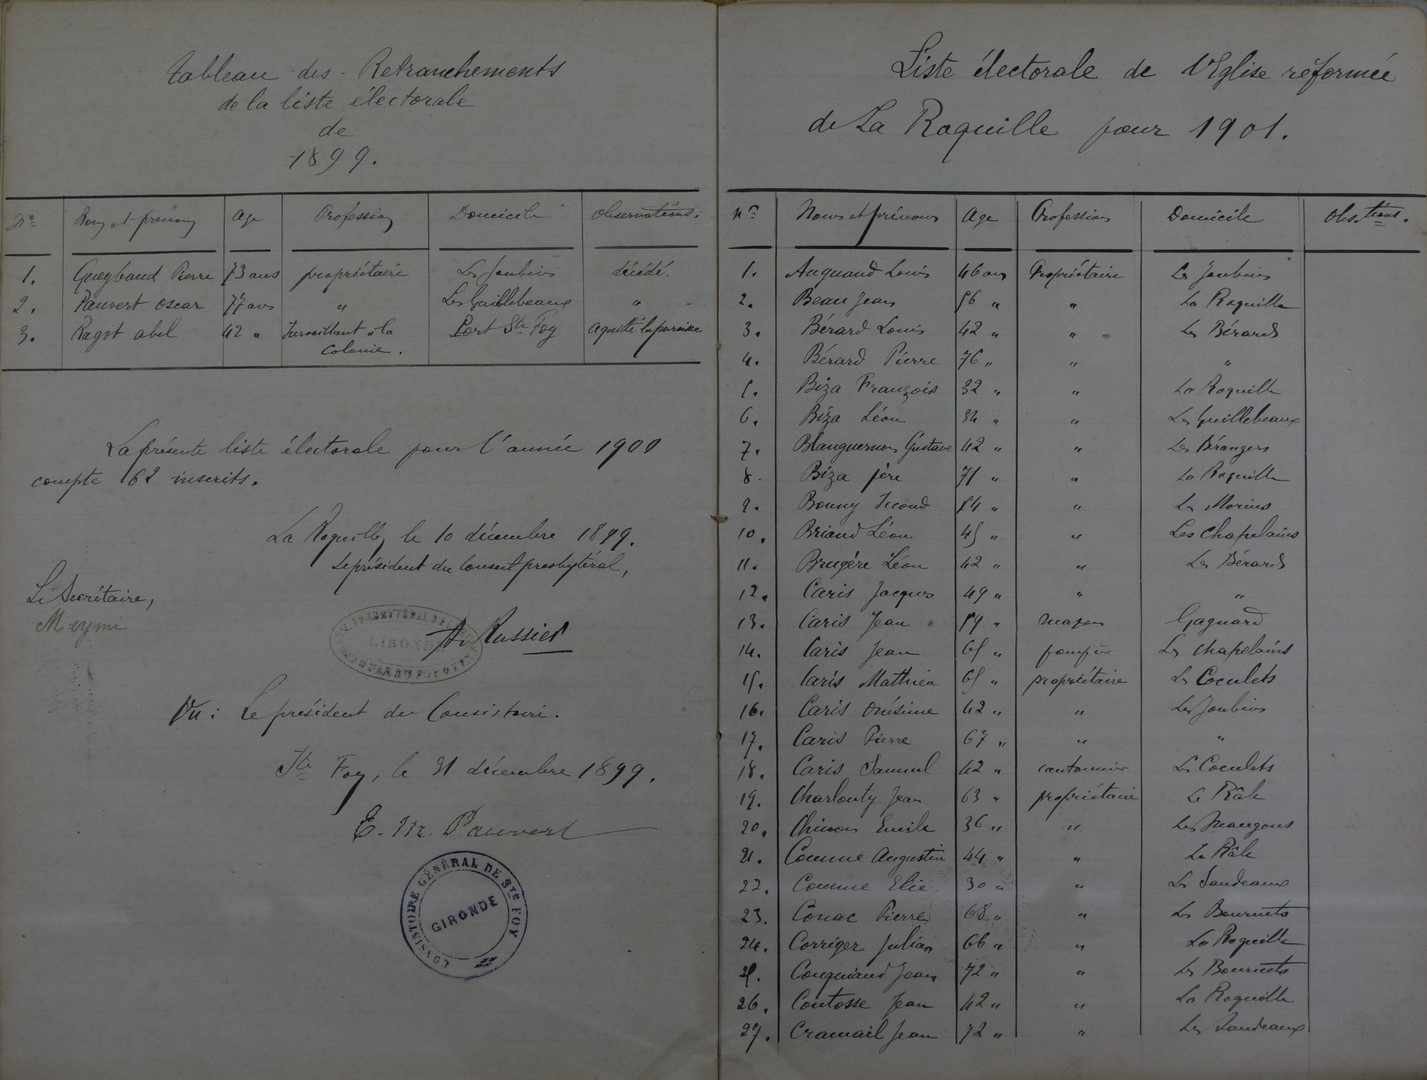 Tableau des Retranchements
de la liste électorale
de
1899.
Nos Nom et prénom Age Profession Domicile Observations.
1. Pierre 73 ans propriétaire Les Joubins décédé.
2. Pauvert Oscar 77 ans " Les Guillebeaux "
3. Ragot abel 42 " Surveillant à la Port Ste Foy a quitté la paroisse
Colonie.
La présente liste électorale pour l'année 1900
compte 62 inscrits.
La Roquille le 10 décembre 1899.
Le président du Conseil presbytéral,
Le Secrétaire,
Meymi
GIRONDE
A. Russier
Vu : Le président du Consistoire.
Ste Foy, le 31 décembre 1899.
E. Pauvert
CONSISTOIRE GÉNÉRAL DE STE FOY
GIRONDE
Liste électorale de l'Eglise réformée
de La Roquille pour 1901.
Nos Noms et prénoms Age Profession Domicile Obs.tions.
1. Louis 46 ans Propriétaire Les Joubins
2. Beau Jean 56 " " La Roquille
3. Bérard Louis 42 " " Les Bérards
4. Bérard Pierre 76 " " "
5. Biza François 32 " " La Roquille
6. Biza Léon 34 " " Les Guillebeaux
7. Gustave 42 " " Les Bérangers
8. Biza père 71 " " La Roquille
9. Bonny Second 54 " " Les Morins
10. Briand Léon 45 " " Les Chapelains
11. Brugère Léon 42 " " Les Bérards
12. Caris Jacques 49 " " "
13. Caris Jean 59 " maçon Gagnard
14. Caris Jean 65 " Les Chapelains
15. Caris Mathieu 65 " propriétaire Les Coculets
16. Caris Onésime 42 " " Les Joubins
17. Caris Pierre 67 " " "
18. Caris Samuel 42 " cantonnier Les Coculets
19. Charlouty Jean 63 " propriétaire Le Râle
20. Emile 36 " " Les Mangons
21. Comme Augustin 44 " " Le Râle
22. Comme Elie 30 " " Les Sandeaux
23. Conac Pierre 68 " " Les Bournets
24. Corriger Julian 66 " " La Roquille
25. Jean 72 " " Les Bournets
26. Coutosse Jean 42 " " La Roquille
27. Cramail Jean 72 " " Les Sandeaux